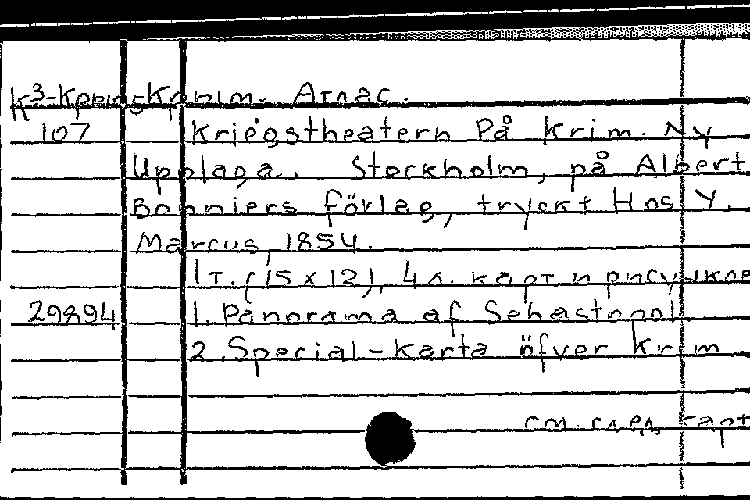 К³-Крым-Крым. Атлас.
107 Kriegstheatern På Krim. Ny
Upplaga. Stockholm, på Albert
Bonniers förlag, tryckt Hos Y.
Marcus, 1854.
1 т. (15 x 12), 4 л. карт и рисунков
29894 1. Panorama af Sebastopol
2. Special-Karta öfver Krim
см. след. карт